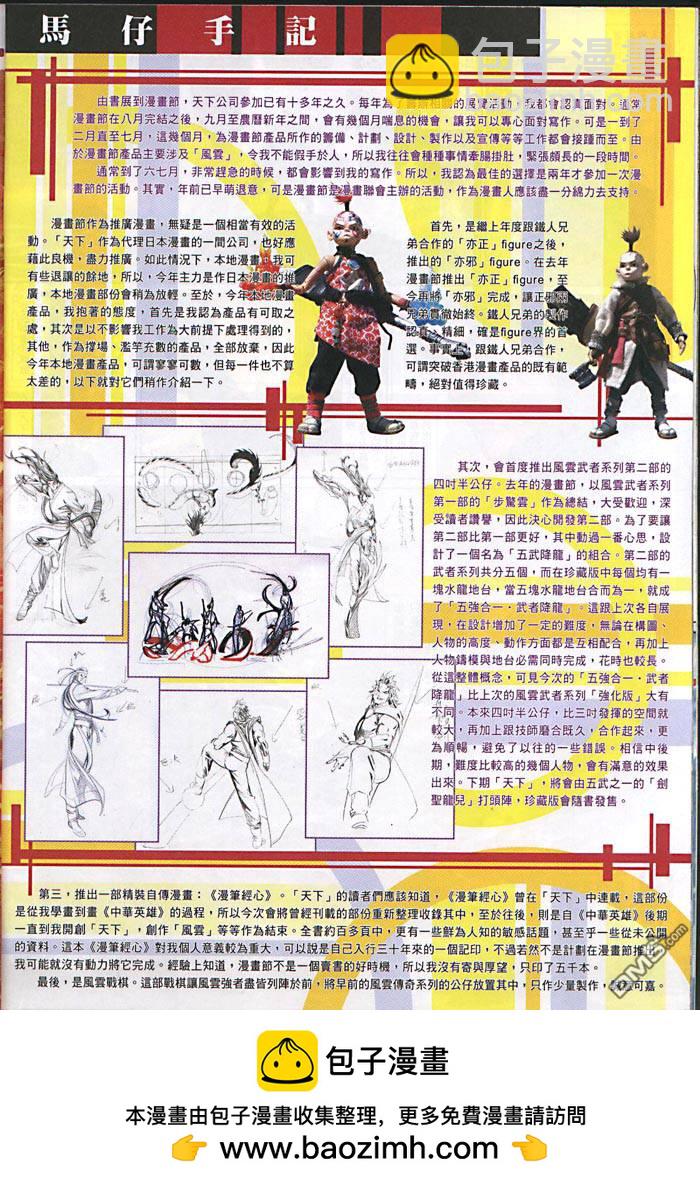 馬仔手記
包子漫畫
由書展到漫畫節，天下公司參加已有十多年之久。每年為了籌辦相關的展覽活動，我都會認真面對。通常
漫畫節在八月完結之後，九月至農曆新年之間，會有幾個月喘息的機會，讓我可以專心面對寫作。可是一到了
二月直至七月，這幾個月，為漫畫節產品所作的籌備、計劃、設計、製作以及宣傳等等工作都會接踵而至。由
於漫畫節產品主要涉及「風雲」，令我不能假手於人，所以我往往會種種事情牽腸掛肚，緊張頗長的一段時間。
通常到了六七月，非常趕急的時候，都會影響到我的寫作。所以，我認為最佳的選擇是兩年才參加一次漫
畫節的活動。其實，年前已早萌退意，可是漫畫節是漫畫聯會主辦的活動，作為漫畫人應該盡一分綿力去支持。
漫畫節作為推廣漫畫，無疑是一個相當有效的活
動。「天下」作為代理日本漫畫的一間公司，也好應
藉此良機，盡力推廣。如此情況下，本地漫畫，我可
有些退讓的餘地，所以，今年主力是作日本漫畫的推
廣，本地漫畫部份會稍為放輕。至於，今年本地漫畫
產品，我抱著的態度，首先是我認為產品有可取之
處，其次是以不影響我工作為大前提下處理得到的，
其他，作為撐場、濫竽充數的產品，全部放棄，因此
今年本地漫畫產品，可謂寥寥可數，但每一件也不算
太差的，以下就對它們稍作介紹一下。
首先，是繼上年度跟鐵人兄
弟合作的「亦正」figure之後，
推出的「亦邪」figure。在去年
漫畫節推出「亦正」figure，至
今再將「亦邪」完成，讓正邪兩
兄弟貫徹始終。鐵人兄弟的製作
認真、精細，確是figure界的首
選。事實上，跟鐵人兄弟合作，
可謂突破香港漫畫產品的既有範
疇，絕對值得珍藏。
其次，會首度推出風雲武者系列第二部的
四吋半公仔。去年的漫畫節，以風雲武者系列
第一部的「步驚雲」作為總結，大受歡迎，深
受讀者讚譽，因此決心開發第二部。為了要讓
第二部比第一部更好，其中動過一番心思，設
計了一個名為「五武降龍」的組合。第二部的
武者系列共分五個，而在珍藏版中每個均有一
塊水龍地台，當五塊水龍地台合而為一，就成
了「五強合一．武者降龍」。這跟上次各自展
現，在設計增加了一定的難度，無論在構圖、
人物的高度、動作方面都是互相配合，再加上
人物鑄模與地台必需同時完成，花時也較長。
從這整體概念，可見今次的「五強合一．武者
降龍」比上次的風雲武者系列「強化版」大有
不同。本來四吋半公仔，比三吋發揮的空間就
較大，再加上跟技師磨合既久，合作起來，更
為順暢，避免了以往的一些錯誤。相信中後
期，難度比較高的幾個人物，會有滿意的效果
出來。下期「天下」，將會由五武之一的「劍
聖龍兒」打頭陣，珍藏版會隨書發售。
第三，推出一部精裝自傳漫畫：《漫筆經心》。「天下」的讀者們應該知道，《漫筆經心》曾在「天下」中連載，這部份
是從我學畫到畫《中華英雄》的過程，所以今次會將曾經刊載的部份重新整理收錄其中，至於往後，則是自《中華英雄》後期
一直到我開創「天下」，創作「風雲」等等作為結束。全書約百多頁中，更有一些鮮為人知的敏感話題，甚至乎一些從未公開
的資料。這本《漫筆經心》對我個人意義較為重大，可以說是自己入行三十年來的一個記印，不過若然不是計劃在漫畫節推出，
我可能就沒有動力將它完成。經驗上知道，漫畫節不是一個賣書的好時機，所以我沒有寄與厚望，只印了五千本。
最後，是風雲戰棋。這部戰棋讓風雲強者盡皆列陣於前，將早前的風雲傳奇系列的公仔放置其中，只作少量製作，誠意可嘉。
包子漫畫
本漫畫由包子漫畫收集整理，更多免費漫畫請訪問
www.baozimh.com